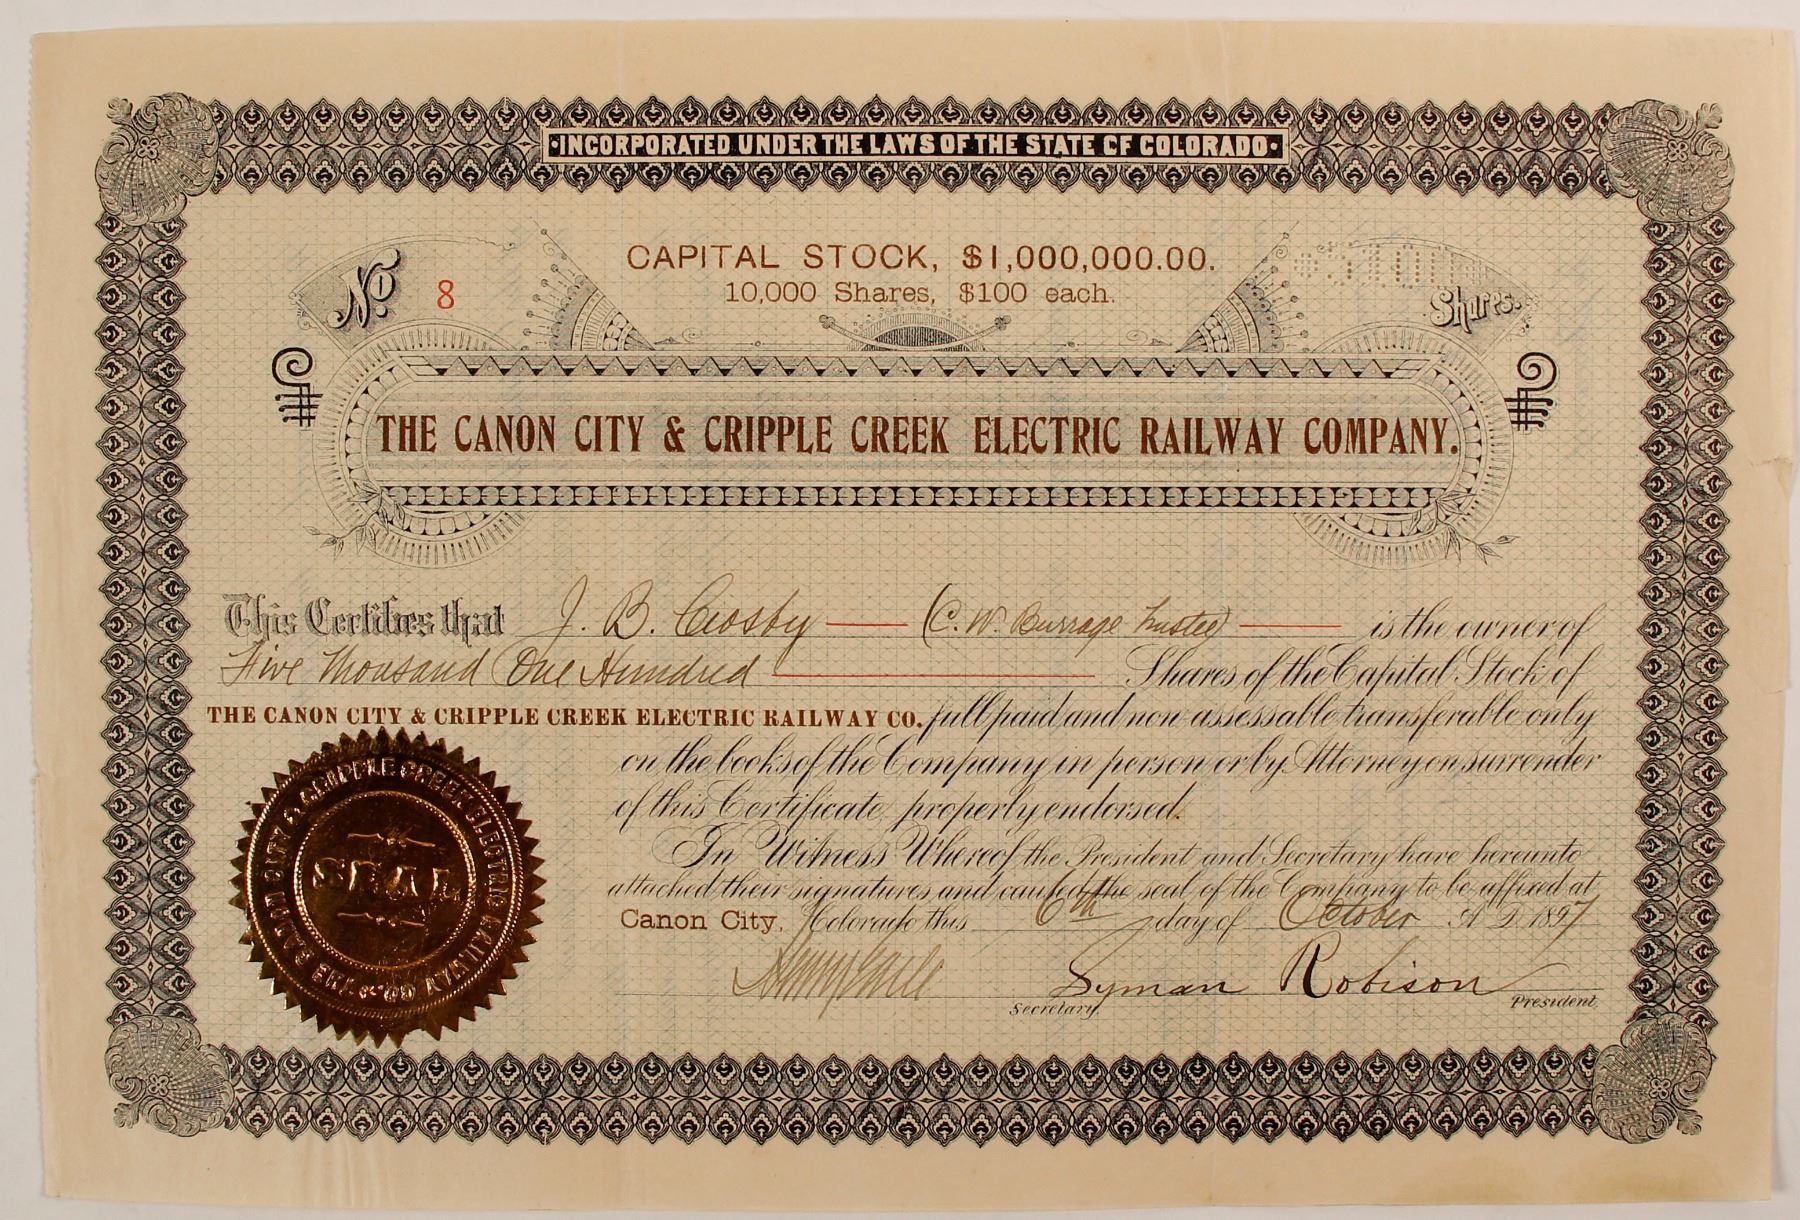 ·INCORPORATED UNDER THE LAWS OF THE STATE OF COLORADO·
CAPITAL STOCK, $1,000,000.00.
10,000 Shares, $100 each.
No. 8
Shares.
THE CANON CITY & CRIPPLE CREEK ELECTRIC RAILWAY COMPANY.
This Certifies that J. B. Crosby (C. W. Burrage Trustee) is the owner of
Five Thousand One Hundred Shares of the Capital Stock of
THE CANON CITY & CRIPPLE CREEK ELECTRIC RAILWAY CO. full paid and non-assessable transferable only
on the books of the Company in person or by Attorney on surrender
of this Certificate, properly endorsed.
In Witness Whereof the President and Secretary have hereunto
attached their signatures and caused the seal of the Company to be affixed at
Canon City, Colorado this 6th day of October A D 1897
Lyman Robison
Secretary. President.
THE CANON CITY & CRIPPLE CREEK ELECTRIC RAILWAY CO.
SEAL